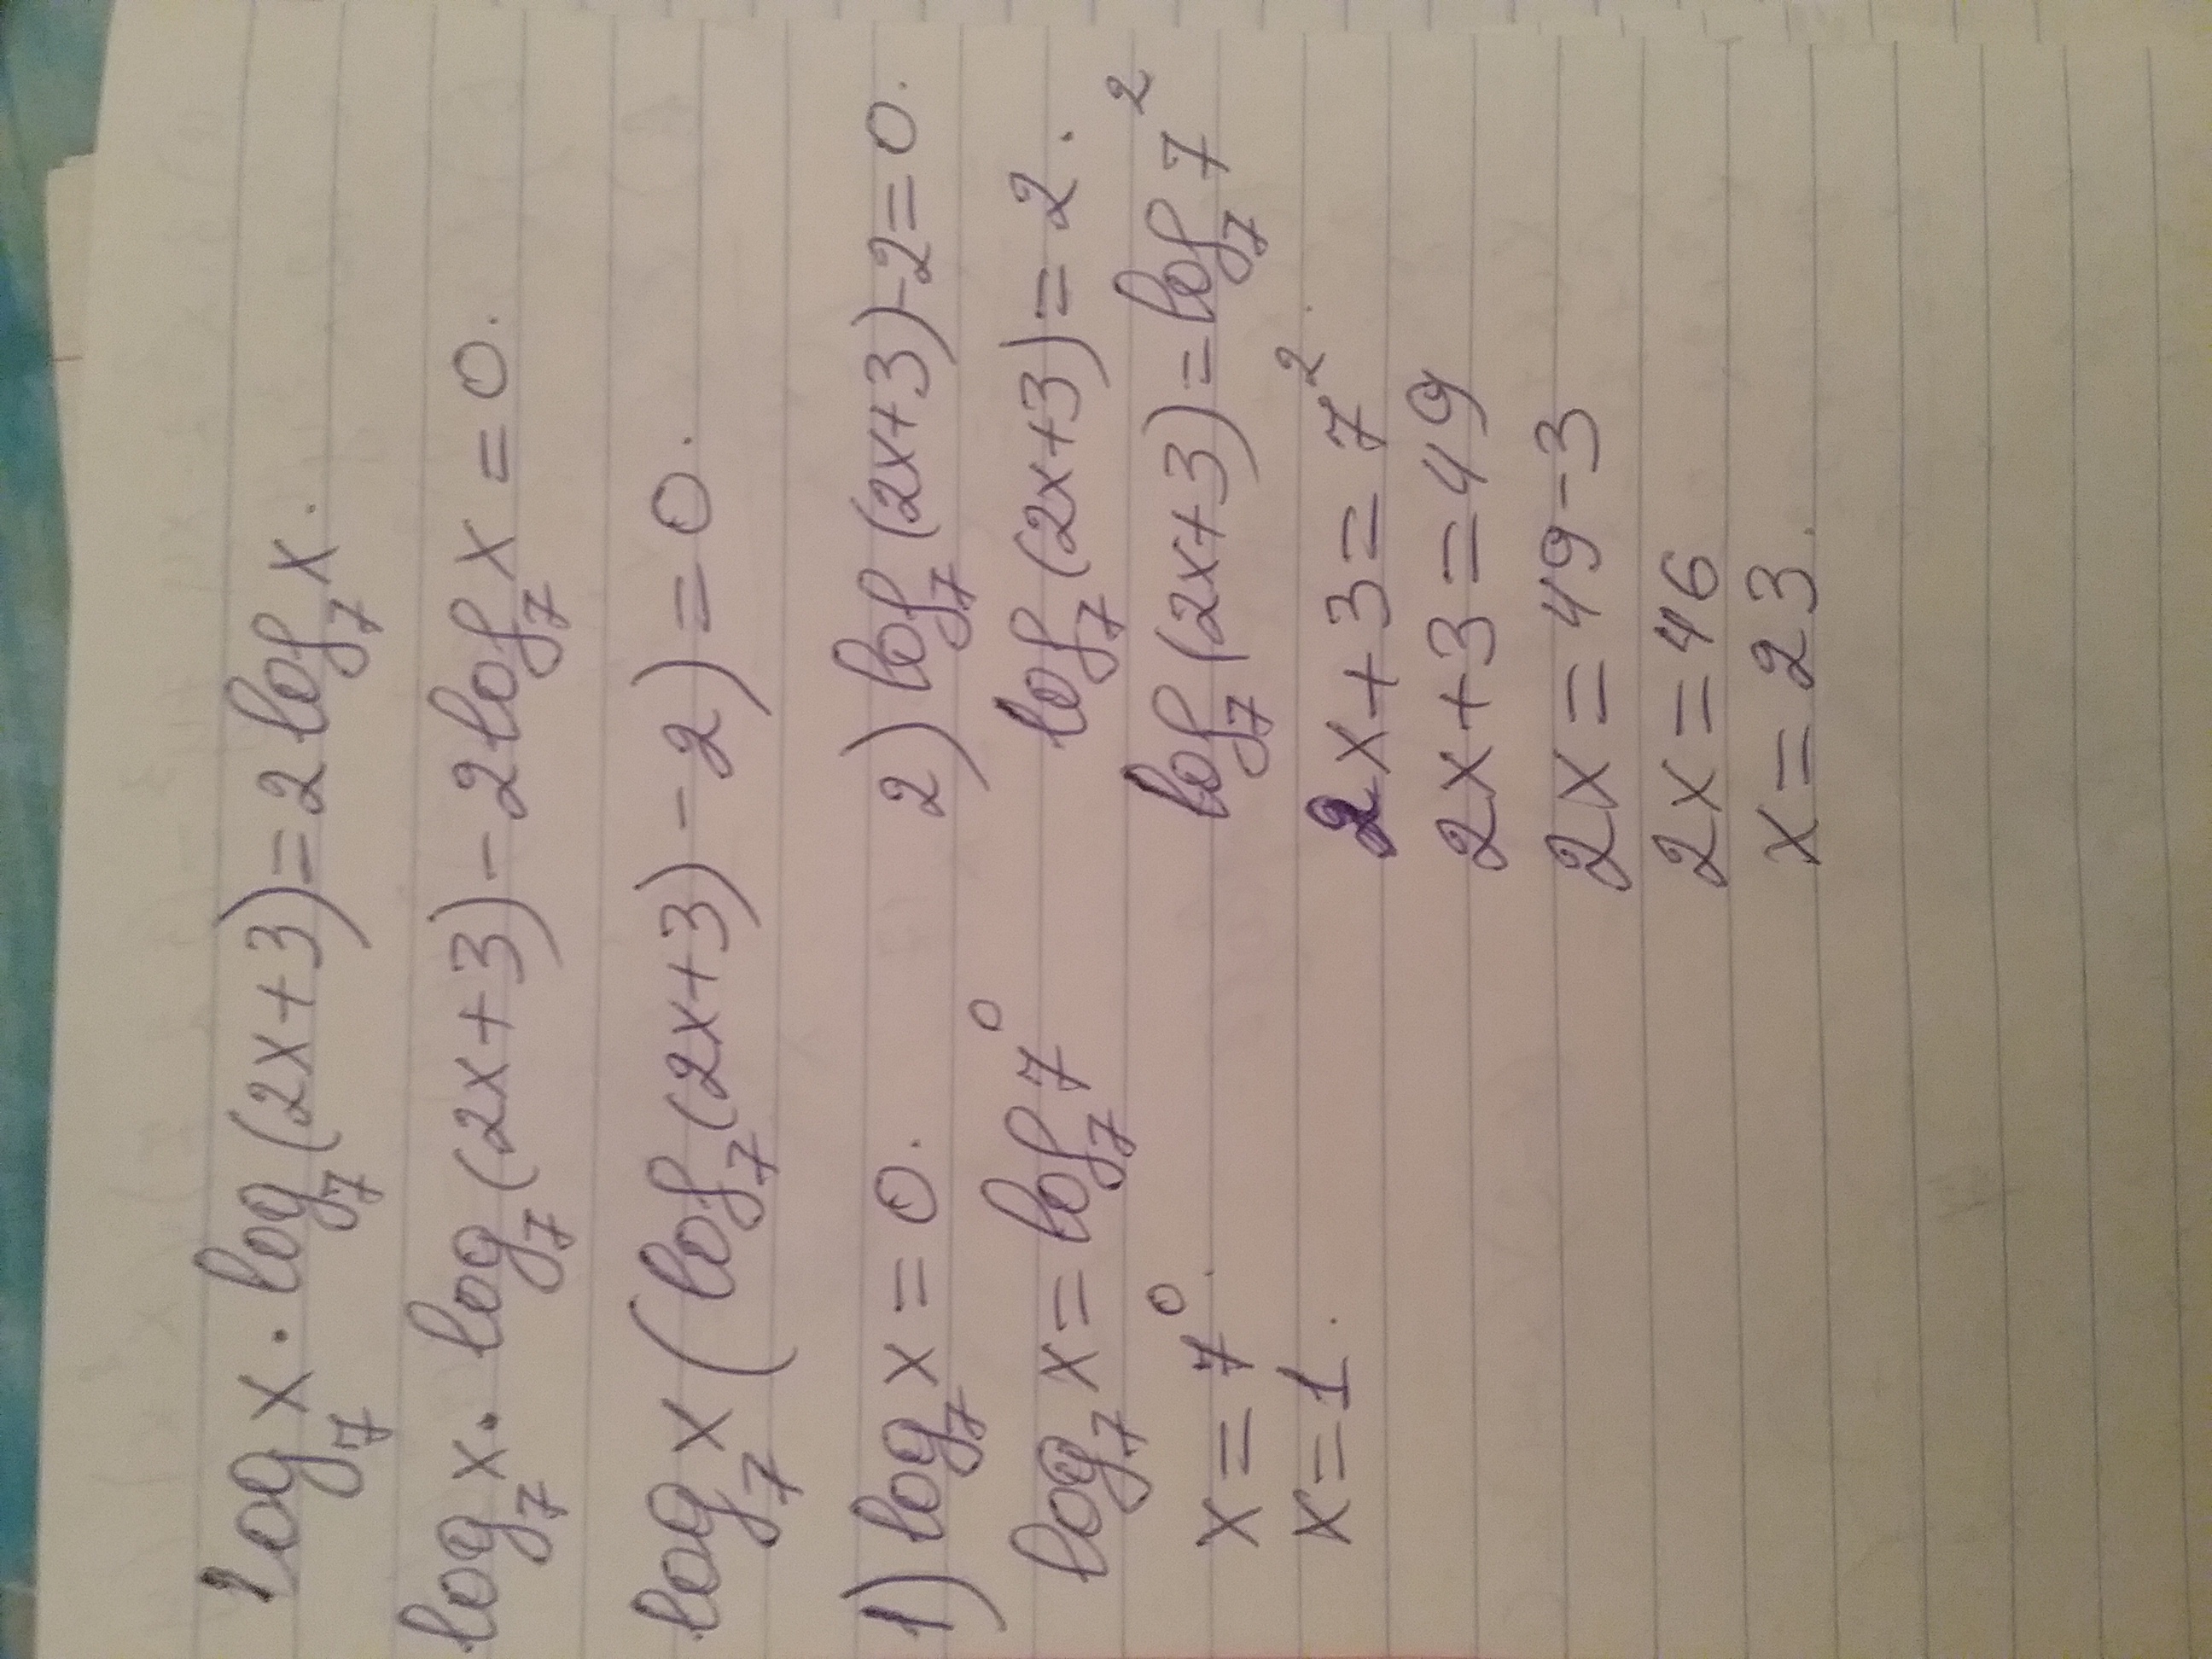 log₇x · log₇(2x+3)=2log₇x.
log₇x · log₇(2x+3)-2log₇x=0.
log₇x(log₇(2x+3)-2)=0.
1) log₇x=0.
log₇x=log₇7⁰
x=7⁰.
x=1.
2) log₇(2x+3)-2=0.
log₇(2x+3)=2.
log₇(2x+3)=log₇7²
2x+3=7².
2x+3=49
2x=49-3
2x=46
x=23.